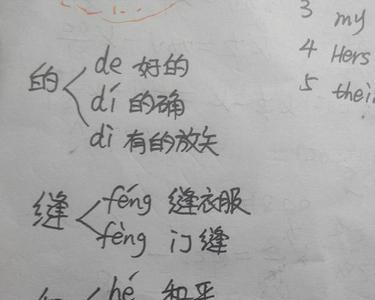 3 my
de 好的
4 Hers
的 dí 的确
5 thei
dì 有的放矢
féng 缝衣服
缝
fèng 门缝
hé 和平